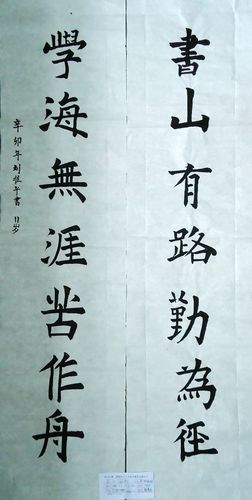 書山有路勤為徑
學海無涯苦作舟
辛卯年刘恒午書 11岁